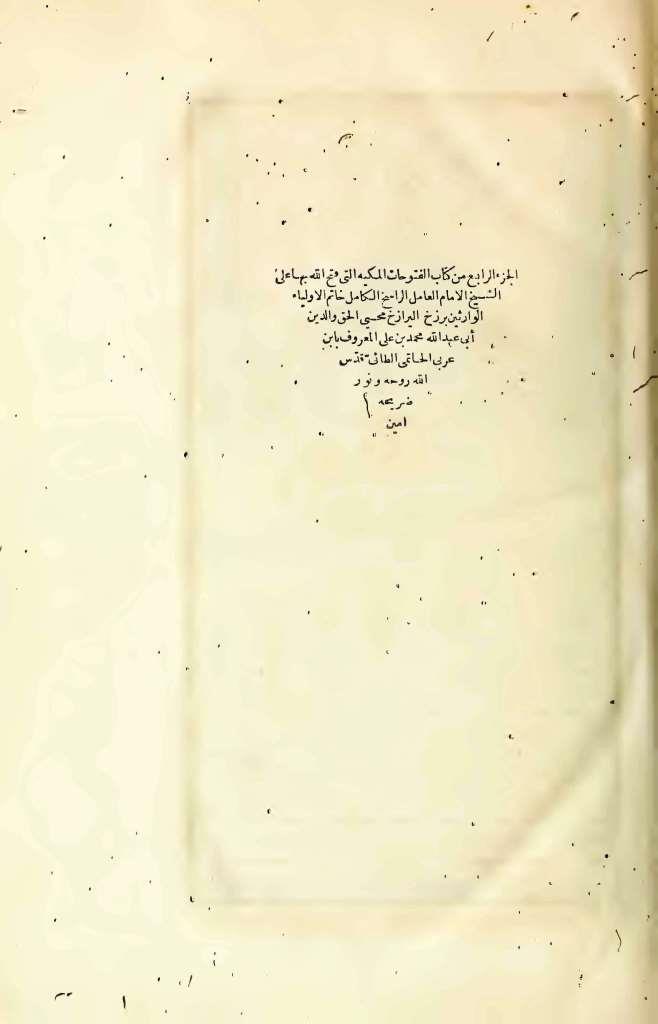 الجزء الرابع من كتاب الفتوحات المكيه التي فتح الله بها على
الشيخ الامام العامل الراسخ الكامل خاتم الاولياء
الوارثين برزخ البرازخ محيي الحق والدين
أبي عبد الله محمد بن علي المعروف بابن
عربي الحاتمي الطائي قدس
الله روحه ونور
ضريحه
امين